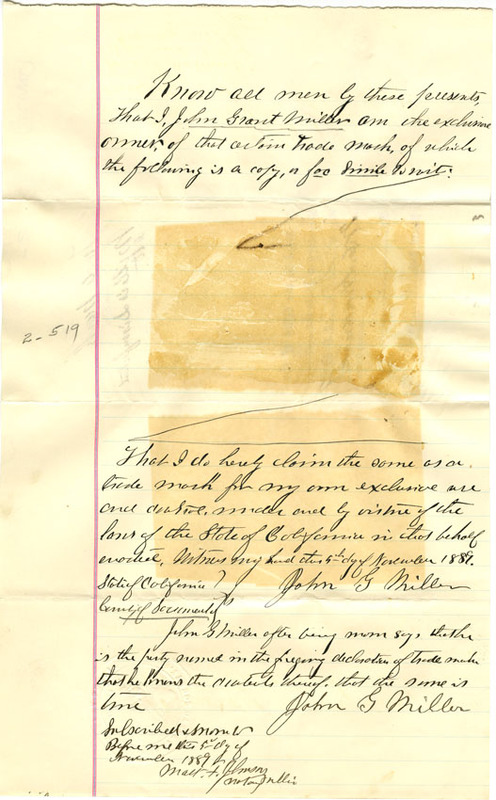 Know all men by these presents,
That I, John Grant Miller am the exclusive
owner, of that certain trade mark, of which
the following is a copy, a fac simile to wit:
2-519
That I do hereby claim the same as a
trade mark for my own exclusive use
and under and by virtue of the
laws of the State of California in that behalf
enacted, Witness my hand this 5th day of November 1889.
State of California
County of Sacramento
John G Miller
John G Miller after being sworn says that he
is the party named in the foregoing declaration of trade mark
that he knows the contents thereof, that the same is
true
John G Miller
Subscribed & sworn to
Before me this 5th day of
November 1889
Matt. F. Johnson
Notary Public